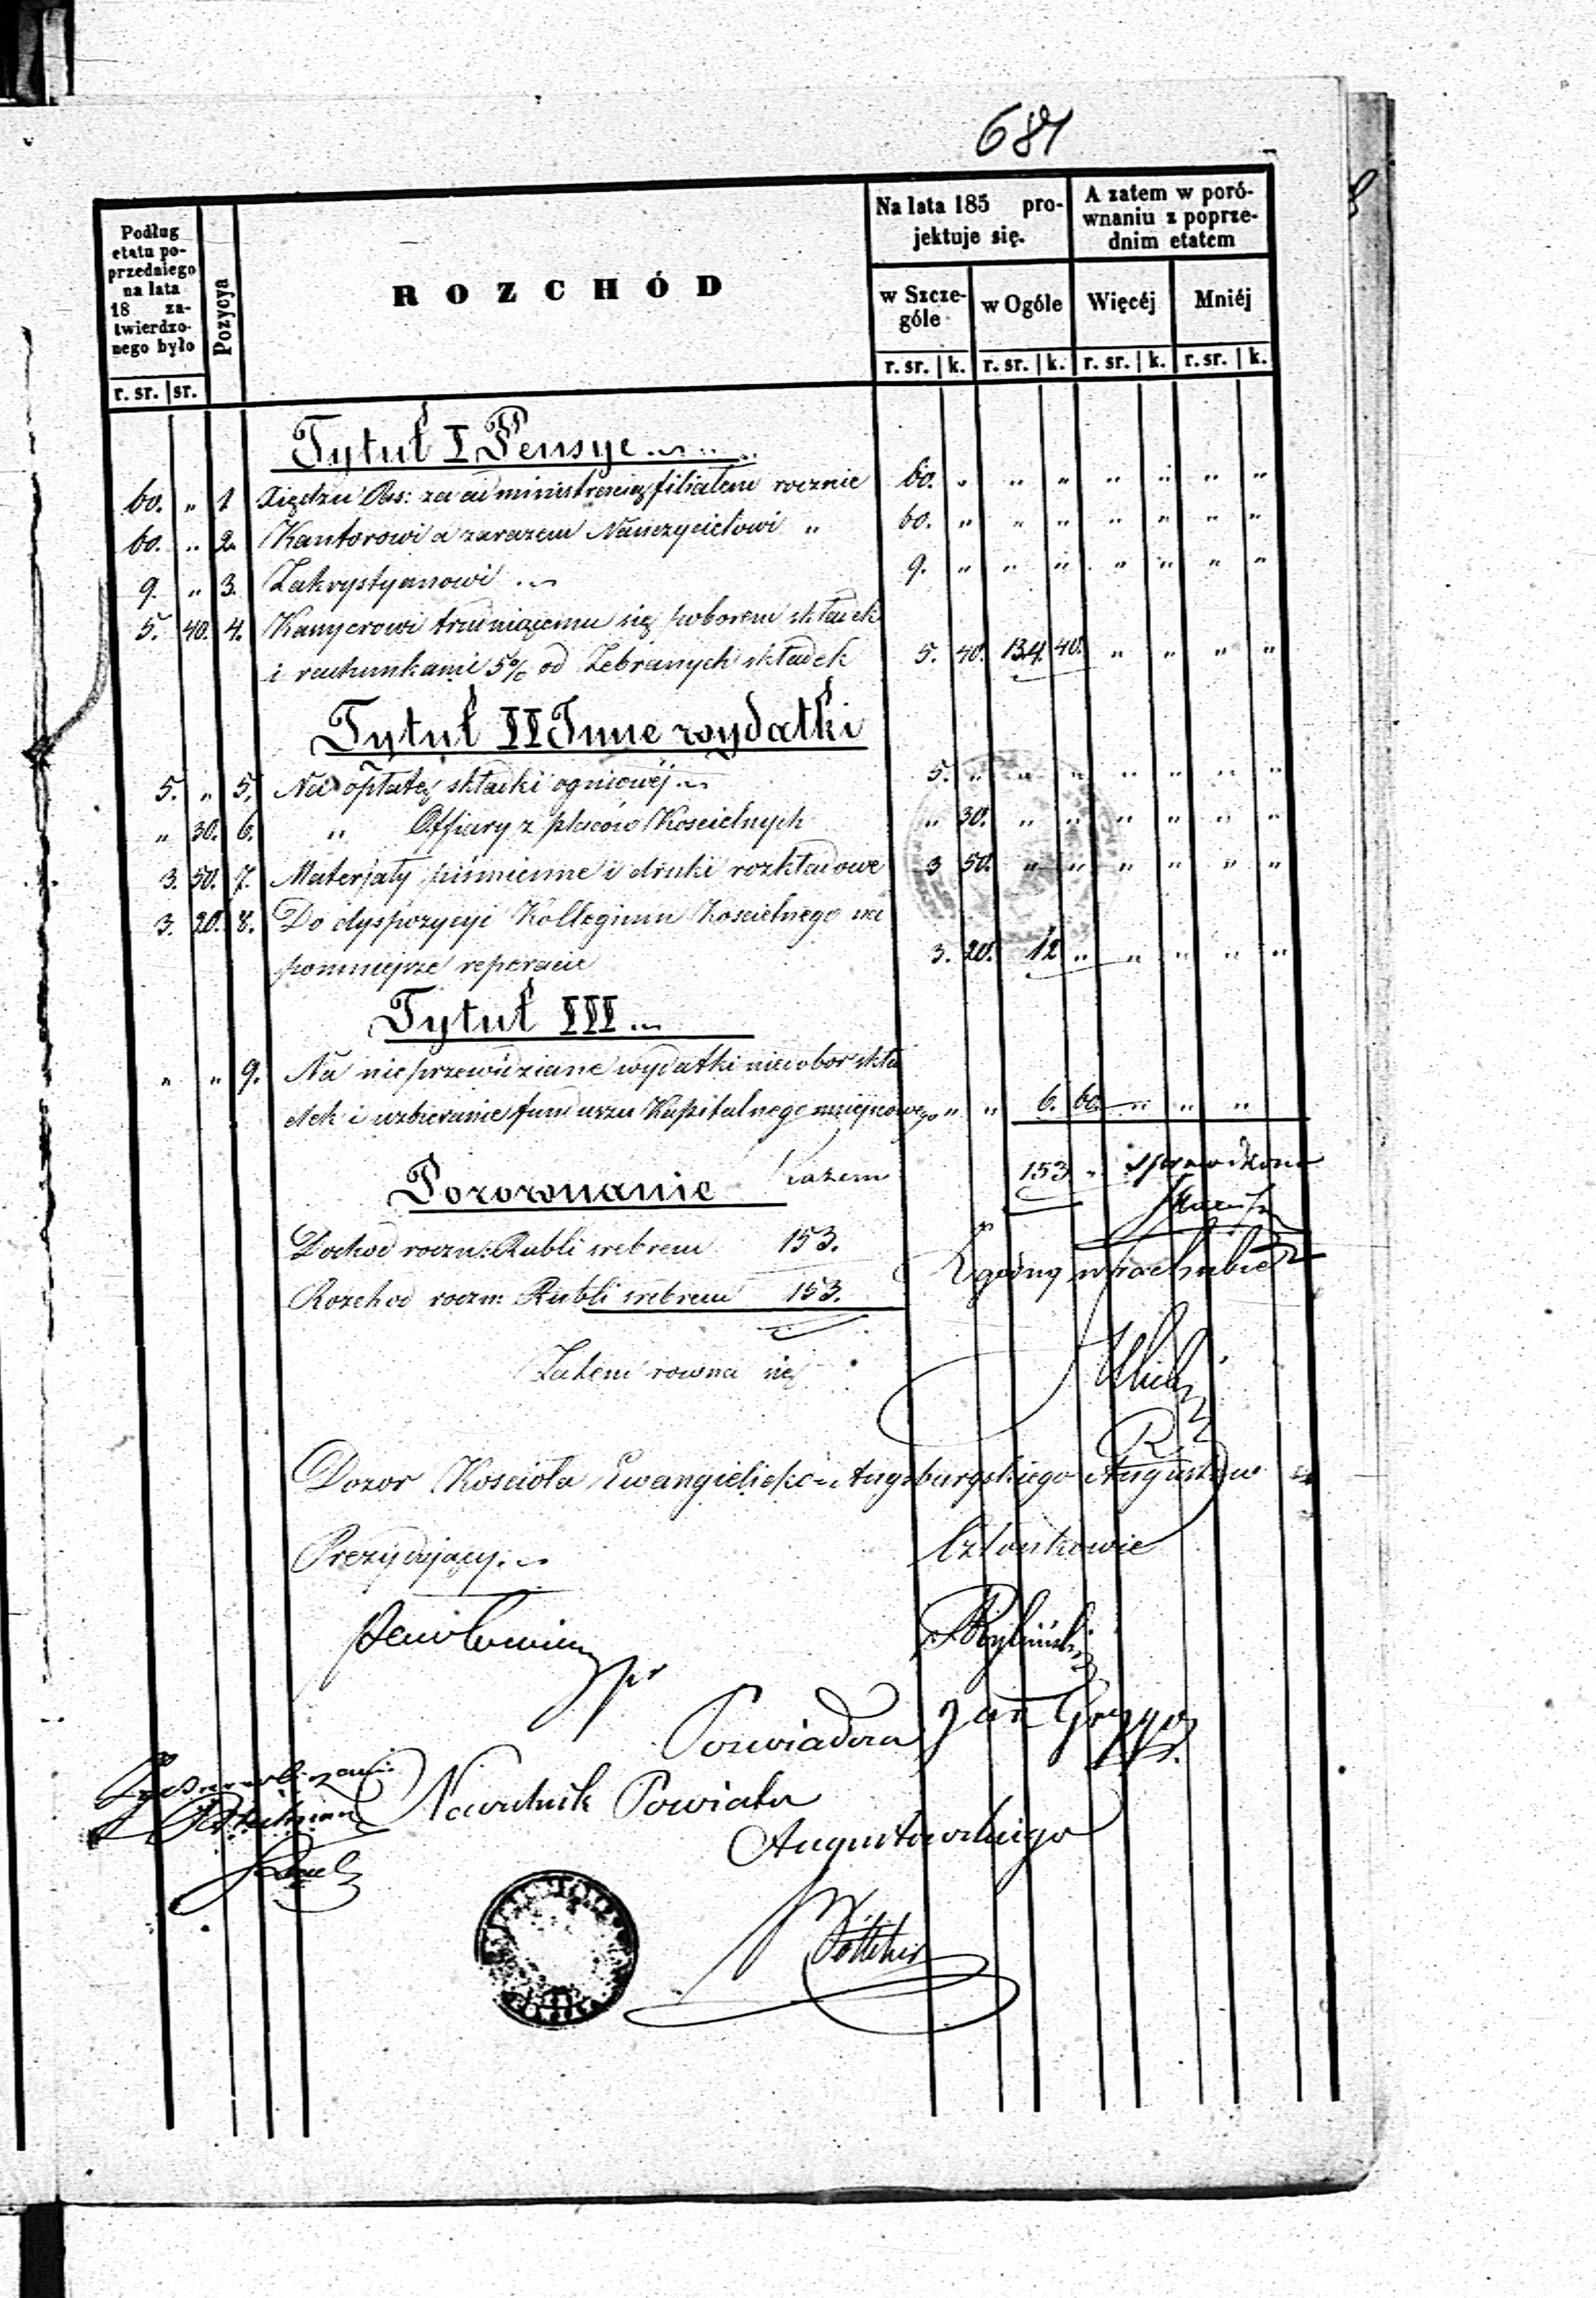 684
Podług etatu poprzedniego na lata 18 zatwierdzonego było
Pozycya
ROZCHÓD
Na lata 185 projektuje się.
A zatem w porównaniu z poprzednim etatem
w Szczególe
w Ogóle
Więcéj
Mniéj
r. sr. | sr.
r. sr. | k. r. sr. | k. r. sr. | k. r. sr. | k.
Tytuł I Pensye
60. " 1 Xiędzu Pas: za administracią filiałem rocznie 60. " " " " " " "
60. " 2. Kantorowi a zarazem Nauczycielowi " 60. " " " " " " "
9. " 3. Zakrystyanowi 9. " " " " " " "
5. 40. 4. Kassyerowi trudniącemu się poborem składek
i rachunkami 5% od Zebranych składek 5. 40. 134. 40. " " " "
Tytuł II Inne wydatki
5. " 5. Na opłatę składki ogniowéj 5. " " " " " " "
" 30. 6. " Offiary z placów Kościelnych " 30. " " " " " "
3. 50. 7. Materjały piśmienne i druki rozkładowe 3 50. " " " " " "
3. 20. 8. Do dyspozycyi Kollegium Koscielnego na
pomniejsze reperacie 3. 20. 12 " " " " "
Tytuł III
" " 9. Na nieprzewidziane wydatki niedobor skła
dek i uzbieranie funduszu Kapitalnego " " 6. 60. " " "
Razem 153 " sprawdzono
Porownanie
Dochod roczn: Rubli srebrem 153.
Rozchod roczn: Rubli srebrem 153.
Zgodny w rachubie
Zatem rowna się
Dozor Koscioła Ewangielicko-Augsburgskiego Augustow
Prezydujący
Członkowie
Pawłowicz
Rybiński
Jan
Poswiadcza
Naczelnik Powiatu
Augustowskiego